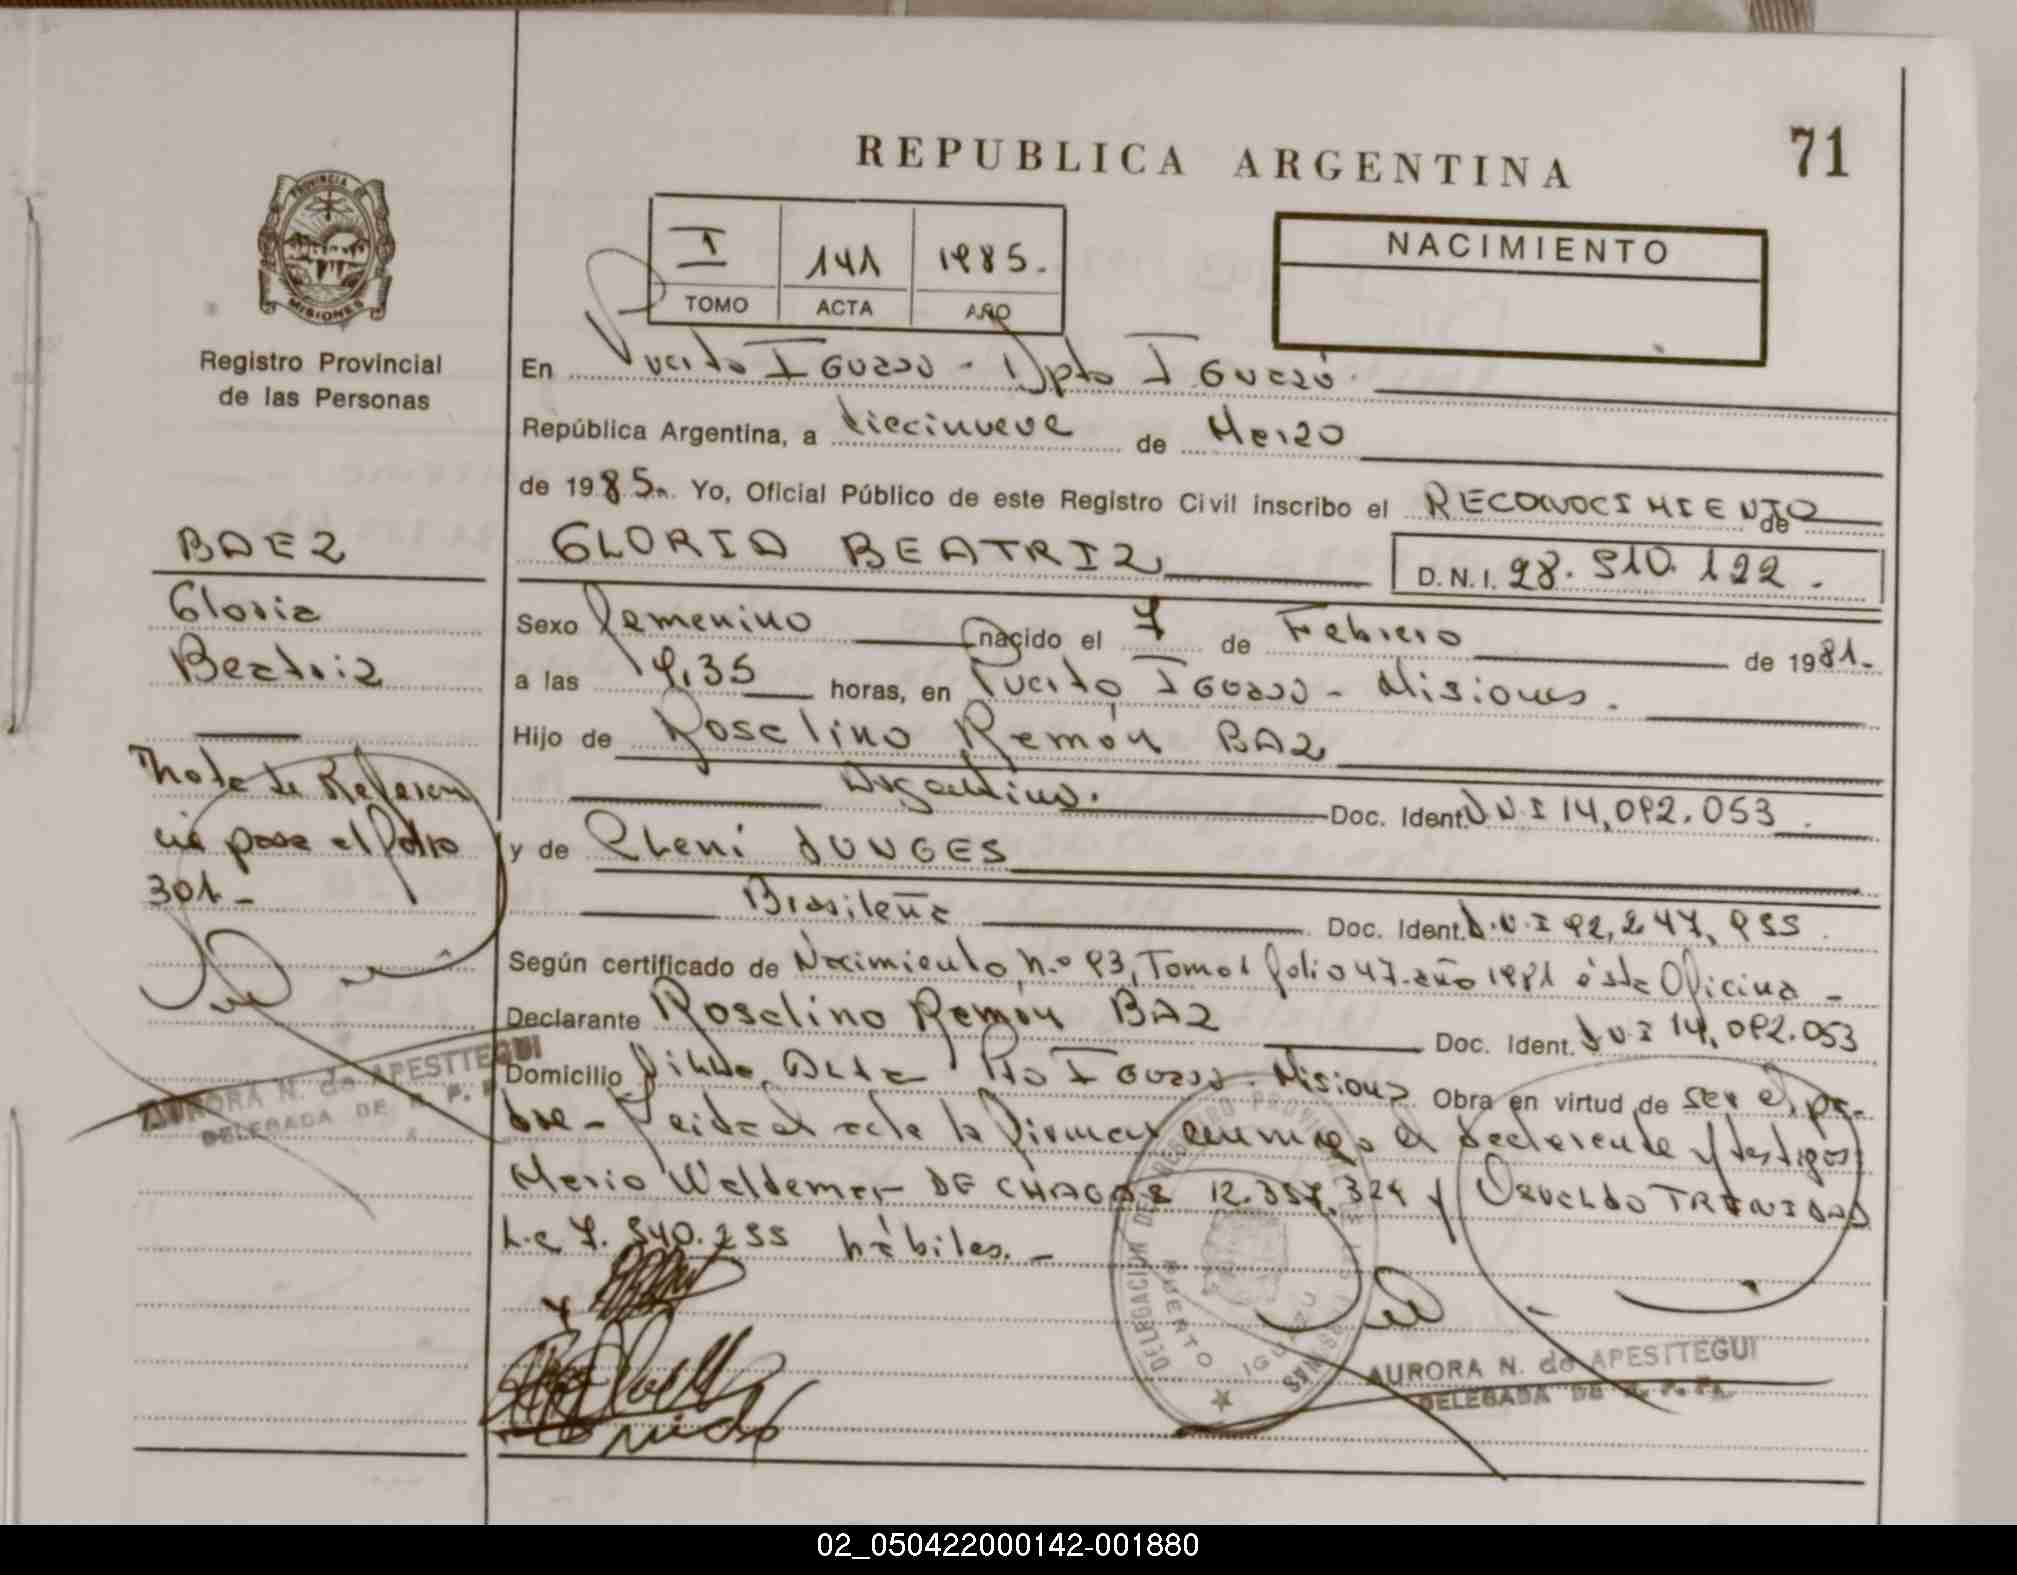 REPUBLICA ARGENTINA
71
PROVINCIA DE
MISIONES
Registro Provincial
de las Personas
I 141 1985.
TOMO ACTA AÑO
NACIMIENTO
En Puerto Iguazú - Dpto Iguazú.
República Argentina, a diecinueve de Marzo
de 1985. Yo, Oficial Público de este Registro Civil inscribo el RECONOCIMIENTO de
GLORIA BEATRIZ D.N.I. 28.510.122.
Sexo Femenino nacido el 7 de Febrero de 1981.
a las 9,35 horas, en Puerto Iguazú - Misiones.
Hijo de Roselino Ramón BAZ
Argentino. Doc. Ident. D N I 14,092.053.
y de Cleni JUNGES
Brasileña Doc. Ident. D.N.I 92,247,955.
Según certificado de Nacimiento n.º 93, Tomo I folio 47 - año 1981 ésta Oficina -
Declarante Roselino Ramón BAZ Doc. Ident. D N I 14,092.053
Domicilio Villa Alta Pto Iguazú - Misiones Obra en virtud de ser el pa-
dre - Leida el acta la firman conmigo el declarante y testigos
Mario Waldemar DE CHAGAS 12.357.324 y Osvaldo TRINIDAD
L.E 7.540.255 hábiles. -
BAEZ
Gloria
Beatriz
Nota de Referen
cia pasa al folio
301 -
AURORA N. de APESTTEGUI
DELEGADA DE R. P. P.
DELEGACION DE REGISTRO PROVINCIAL DE LAS PERSONAS
PUERTO IGUAZU
AURORA N. de APESTTEGUI
DELEGADA DE R. P. P.
02_050422000142-001880